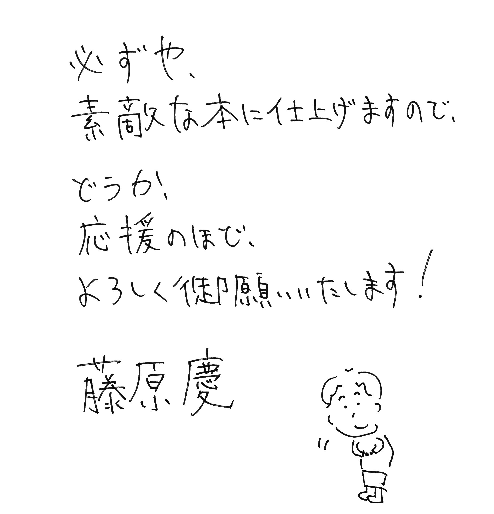 必ずや、
素敵な本に仕上げますので、
どうか、
応援のほど、
よろしく御願いいたします!
藤原慶